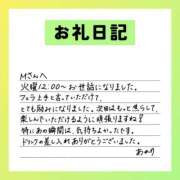 お礼日記
Mさんへ
火曜12:00〜お世話になりました。
フェラ上手と言っていただけて、
とても励みになりました。次回はもっと焦らして
楽しんでいただけるように頑張りますね？
特にあの瞬間は、気持ちよかったです。
ドリンクの差し入れありがとうございました。
あめり